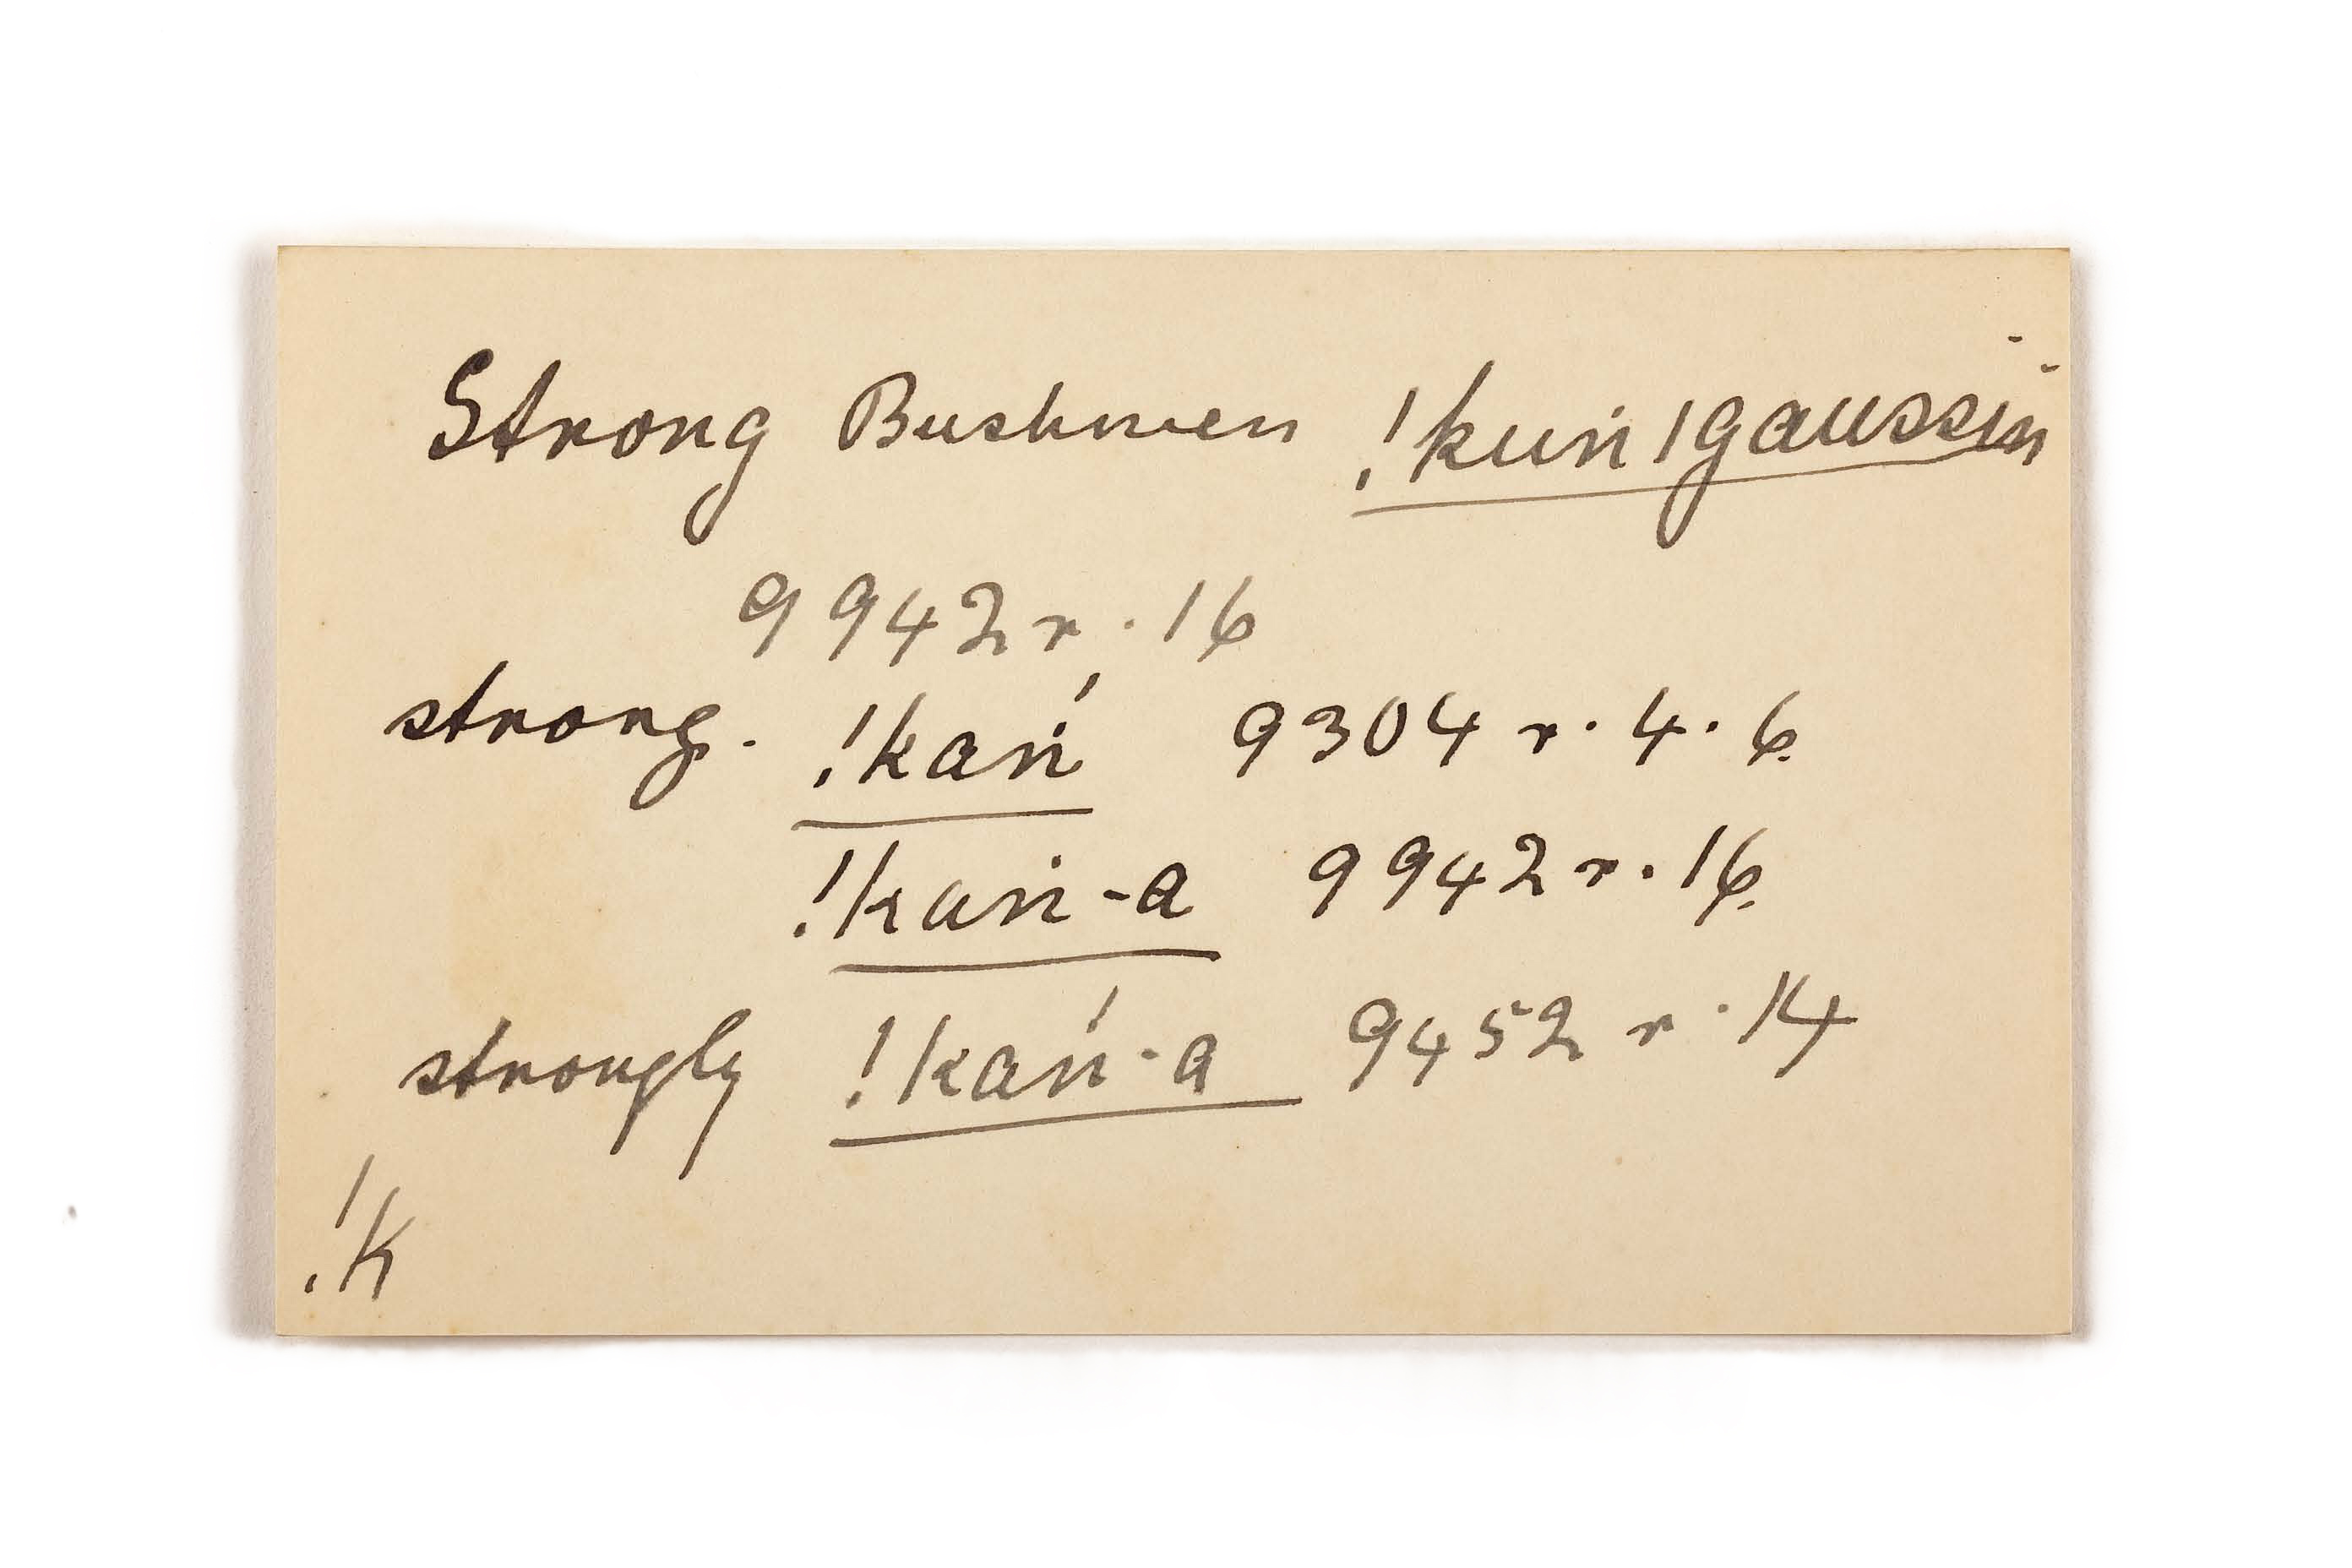 Strong Bushmen !kuṅ |gaussin
9942 r. 16
strong. !kaṅ́ 9304 r. 4. 6.
!kaṅ-a 9942 r. 16.
strongly !kaṅ́-a 9452 r. 14
!k